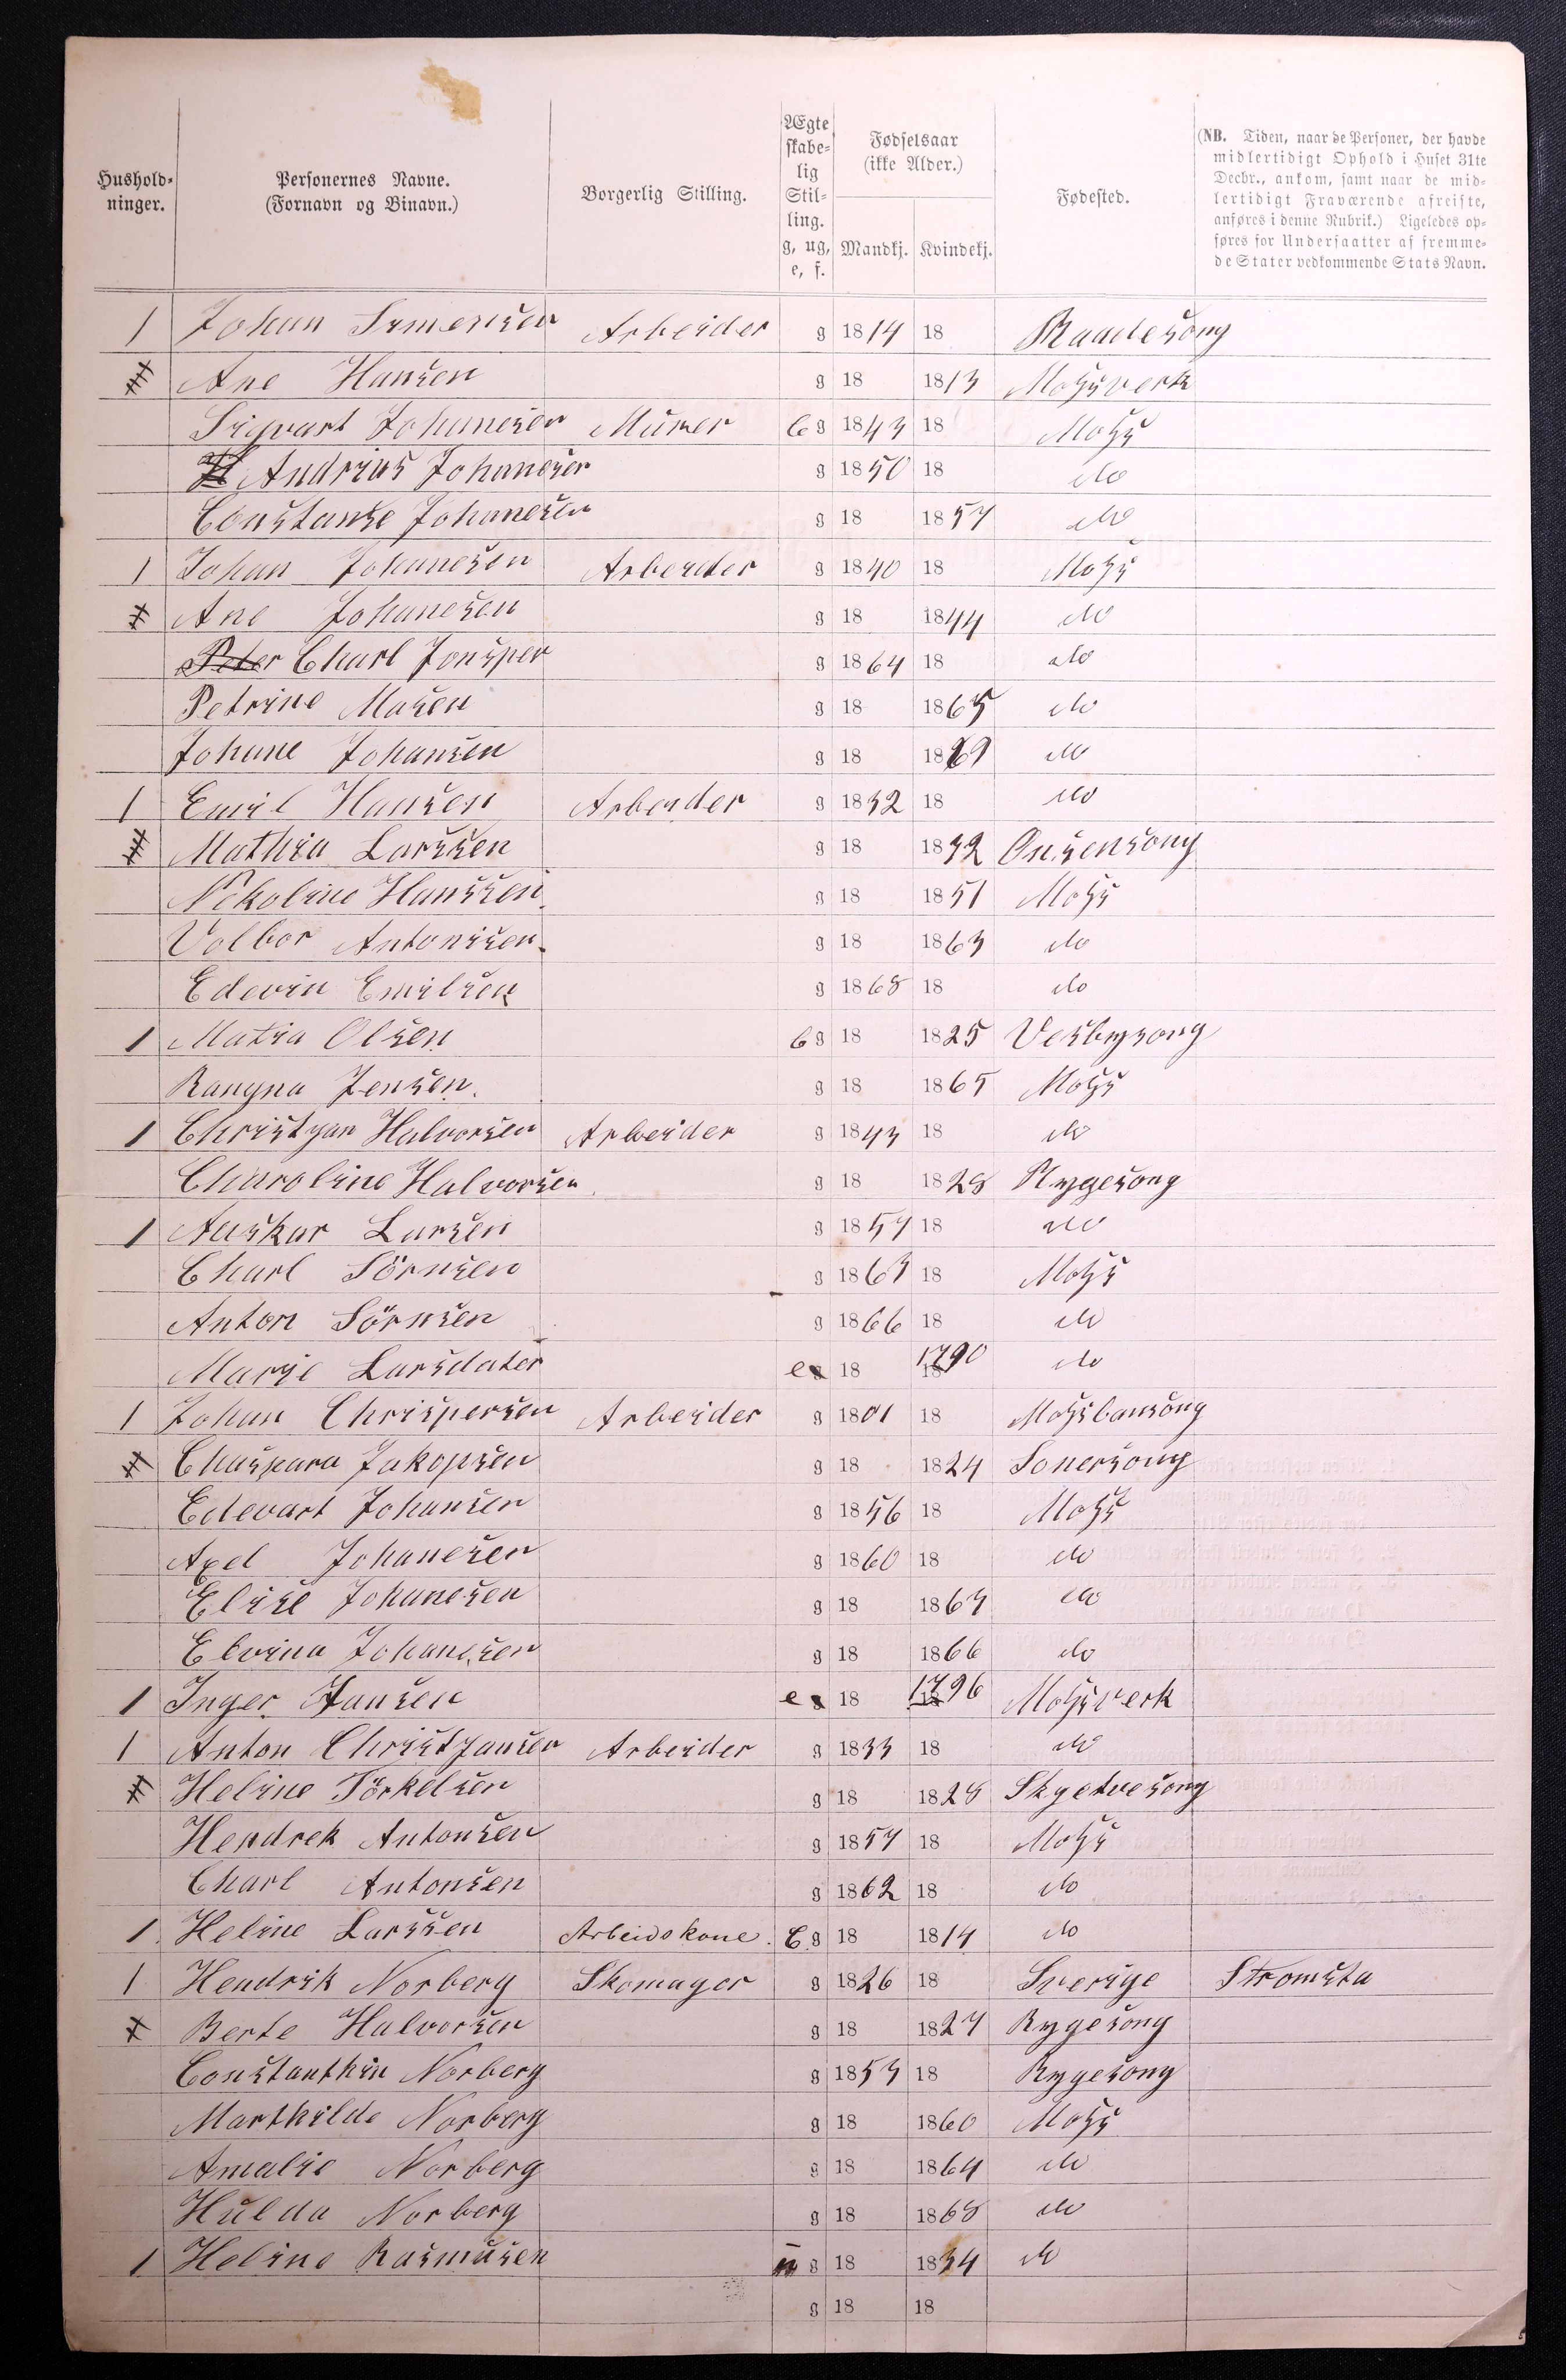 Hushold-
ninger.
Personernes Navne.
(Fornavn og Binavn.)
Borgerlig Stilling.
Ægte
skabe-
lig
Stil-
ling.
g, ug,
e, f.
Fødselsaar
(ikke Alder.)
Mandkj. Kvindekj.
Fødested.
(NB. Tiden, naar de Personer, der havde
midlertidigt Ophold i Huset 31te
Decbr., ankom, samt naar de mid-
lertidigt Fraværende afreiste,
anføres i denne Rubrik.) Ligeledes op-
føres for Undersaatter af fremme-
de Stater vedkommende Stats Navn.
1 Johan Simensen Arbeider g 1814 18 Raadesong
Ane Hansen g 18 1813 Mossverk
Sigvart Johanesen Murer g 1843 18 Moss
Andrius Johanesen g 1850 18 do
Constanse Johanesen g 18 1857 do
1 Johan Johanesen Arbeider g 1840 18 Moss
Ane Johanesen g 18 1844 do
Peter Charl Jonsper g 1864 18 do
Petrine Masen g 18 1865 do
Johane Johansen g 18 1869 do
1 Emil Hansen Arbeider g 1832 18 do
Mathia Larssen g 18 1832 Onsensong
Nikoline Hanssen g 18 1851 Moss
Volbor Antonisen g 18 1863 do
Edevin Emilsen g 1868 18 do
1 Matia Olsen g 18 1825 Vesbysong
Rangna Jensen g 18 1865 Moss
1 Christyan Halvorsen Arbeider g 1843 18 do
Charoline Halvorsen g 18 1828 Rygesong
1 Auskar Larsen g 1857 18 do
Charl Sörnsen g 1863 18 Moss
Anton Sörnsen g 1866 18 do
Marje Larsdater e g 18 1790 do
1 Johan Chrispersen Arbeider g 1801 18 Mosslansong
Chaspara Jakopsen g 18 1824 Sonersong
Edevart Johansen g 1856 18 Moss
Axel Johanesen g 1860 18 do
Elise Johanesen g 18 1864 do
Elvina Johanesen g 18 1866 do
1 Inger Hansen e g 18 1796 Mossverk
1 Anton Christjansen Arbeider g 1833 18 do
Heline Törkelsen g 18 1828 Skyetvesong
Hendrek Antonsen g 1857 18 Moss
Charl Antonsen g 1862 18 do
1 Heline Larssen Arbeidskone g 18 1814 do
1 Hendrik Norberg Skomager g 1826 18 Sverige Stromsta
Berte Halvorsen g 18 1827 Rygesong
Constanthin Norberg g 1853 18 Rygesong
Marthilde Norberg g 18 1860 Moss
Amalie Norberg g 18 1864 do
Hulda Norberg g 18 1868 do
1 Heline Rasmusen u g 18 1834 do
g 18 18